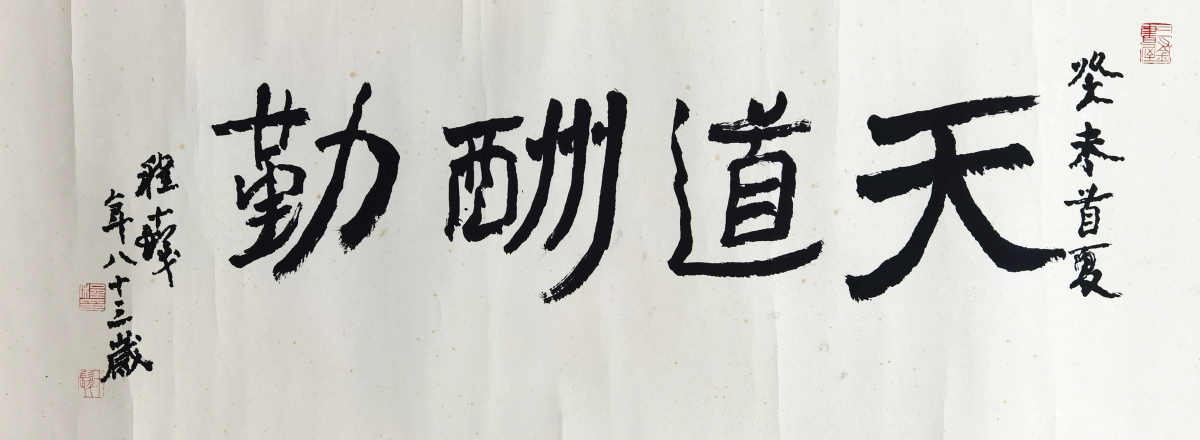 癸未首夏
天道酬勤
程十髮
年八十三歲